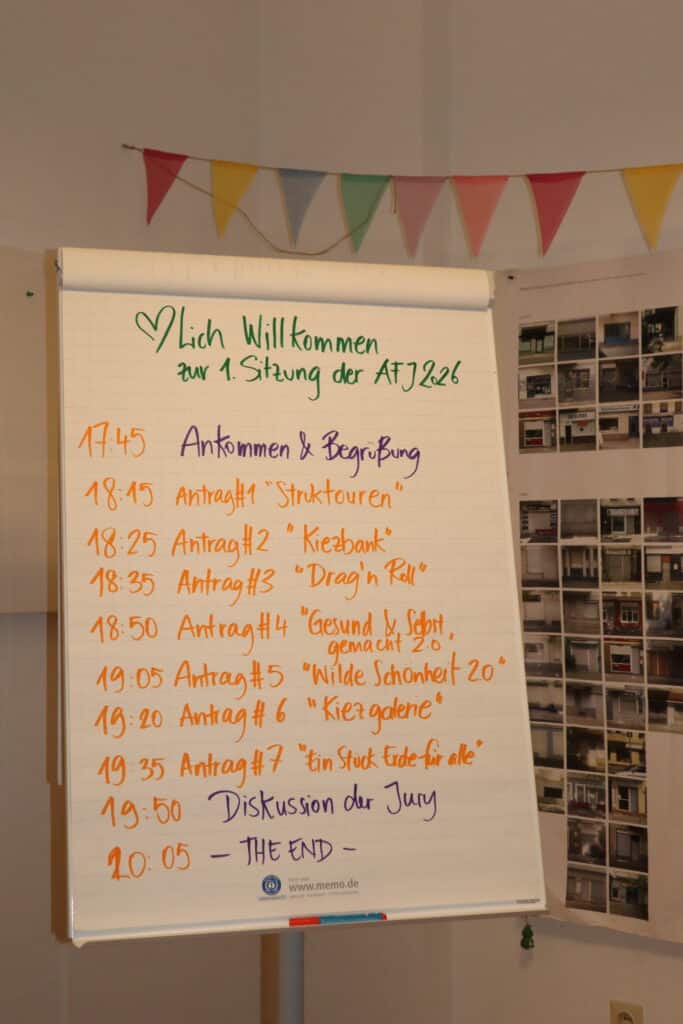 ♡Lich Willkommen
zur 1. Sitzung der AFJ 2026
17:45 Ankommen & Begrüßung
18:15 Antrag#1 "Struktouren"
18:25 Antrag#2 "Kiezbank"
18:35 Antrag#3 "Drag'n Roll"
18:50 Antrag#4 "Gesund & Selbst
gemacht 2.0"
19:05 Antrag#5 "Wilde Schönheit 2.0"
19:20 Antrag#6 "Kiezgalerie"
19:35 Antrag#7 "Ein Stück Erde für alle"
19:50 Diskussion der Jury
20:05 – THE END –
www.memo.de